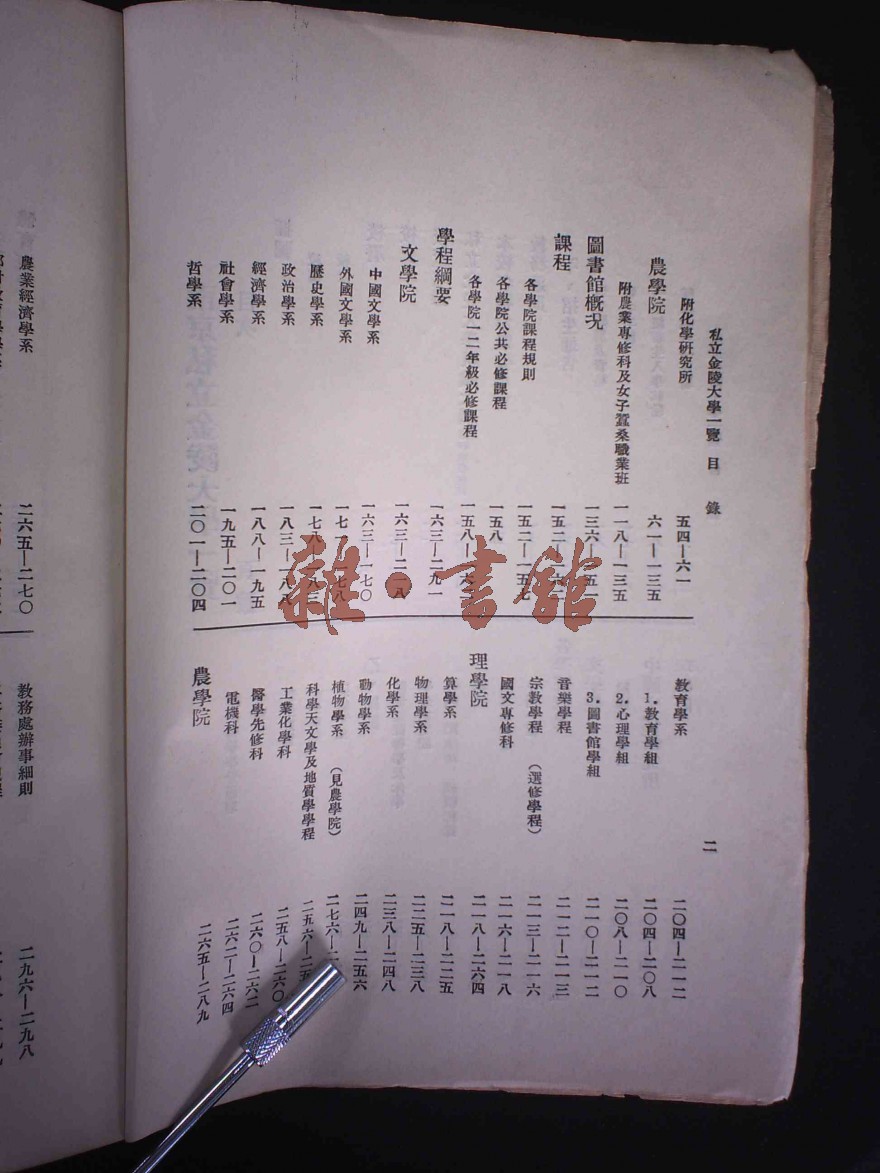 私立金陵大學一覽 目 錄 二
附化學研究所 五四—六一
農學院 六一—一三五
附農業專修科及女子蠶桑職業班 一一八—一三五
圖書館概况 一三六—
課程 一五二—
各學院課程規則 一五二—一五七
各學院公共必修課程 一五八
各學院一二年級必修課程 一五八—
學程綱要 一六三—二九一
文學院 一六三—二一八
中國文學系 一六三—一七〇
外國文學系 一七一—一七八
歷史學系 一七八—一八三
政治學系 一八三—一八八
經濟學系 一八八—一九五
社會學系 一九五—二〇一
哲學系 二〇一—二〇四
教育學系 二〇四—二一二
1.教育學組 二〇四—二〇八
2.心理學組 二〇八—二一〇
3.圖書館學組 二一〇—二一二
音樂學程 二一二—二一三
宗教學程 (選修學程) 二一三—二一六
國文專修科 二一六—二一八
理學院 二一八—二六四
算學系 二一八—二二五
物理學系 二二五—二三八
化學系 二三八—二四八
動物學系 二四九—二五六
植物學系 (見農學院) 二七六—
科學天文學及地質學學程 二五六—
工業化學科 二五八—二六〇
醫學先修科 二六〇—二六二
電機科 二六二—二六四
農學院 二六五—二八九
農業經濟學系 二六五—二七〇
教務處辦事細則 二九六—二九八
雜·書館